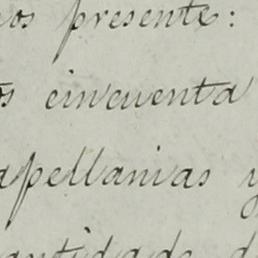 os presente:
s cincuenta
apellanias y
antidade d